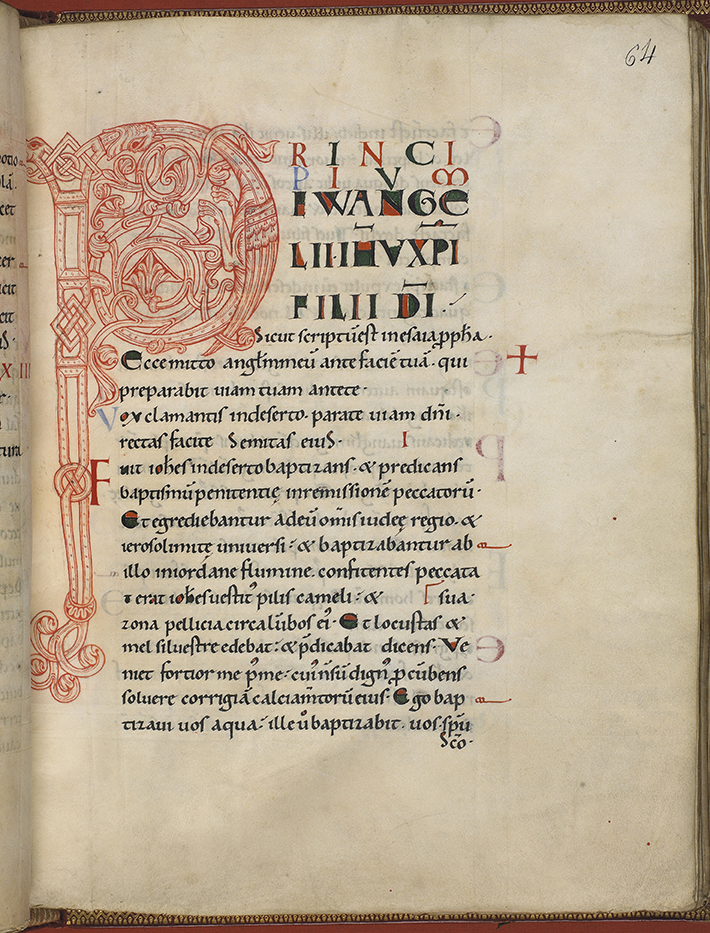 64
PRINCI
PIVM
EWANGE
LII·IHV XPI
FILII DI·
Sicut scriptu est in esaia ppha·
Ecce mitto anglm meu ante facie tua· qui
preparabit uiam tuam ante te·
Vox clamantis in deserto· parate uiam dni·
rectas facite Semitas eius· I
Fuit iohes in deserto baptizans· & predicans
baptismu penitentię in remissione peccatoru·
Et egrediebantur ad eu omis iudeę regio· &
ierosolimitę uniuersi· & baptizabantur ab
illo in iordane flumine confitentes peccata
& erat iohes uestit pilis cameli· & sua·
zona pellicia circa lubos ei· Et locustas &
mel siluestre edebat· & pdicabat dicens· Ve
niet fortior me p me· cui n su dign pcubens
soluere corrigia calciamtoru eius· Ego bap
tizaui uos aqua· ille u baptizabit uos spu
Sco·